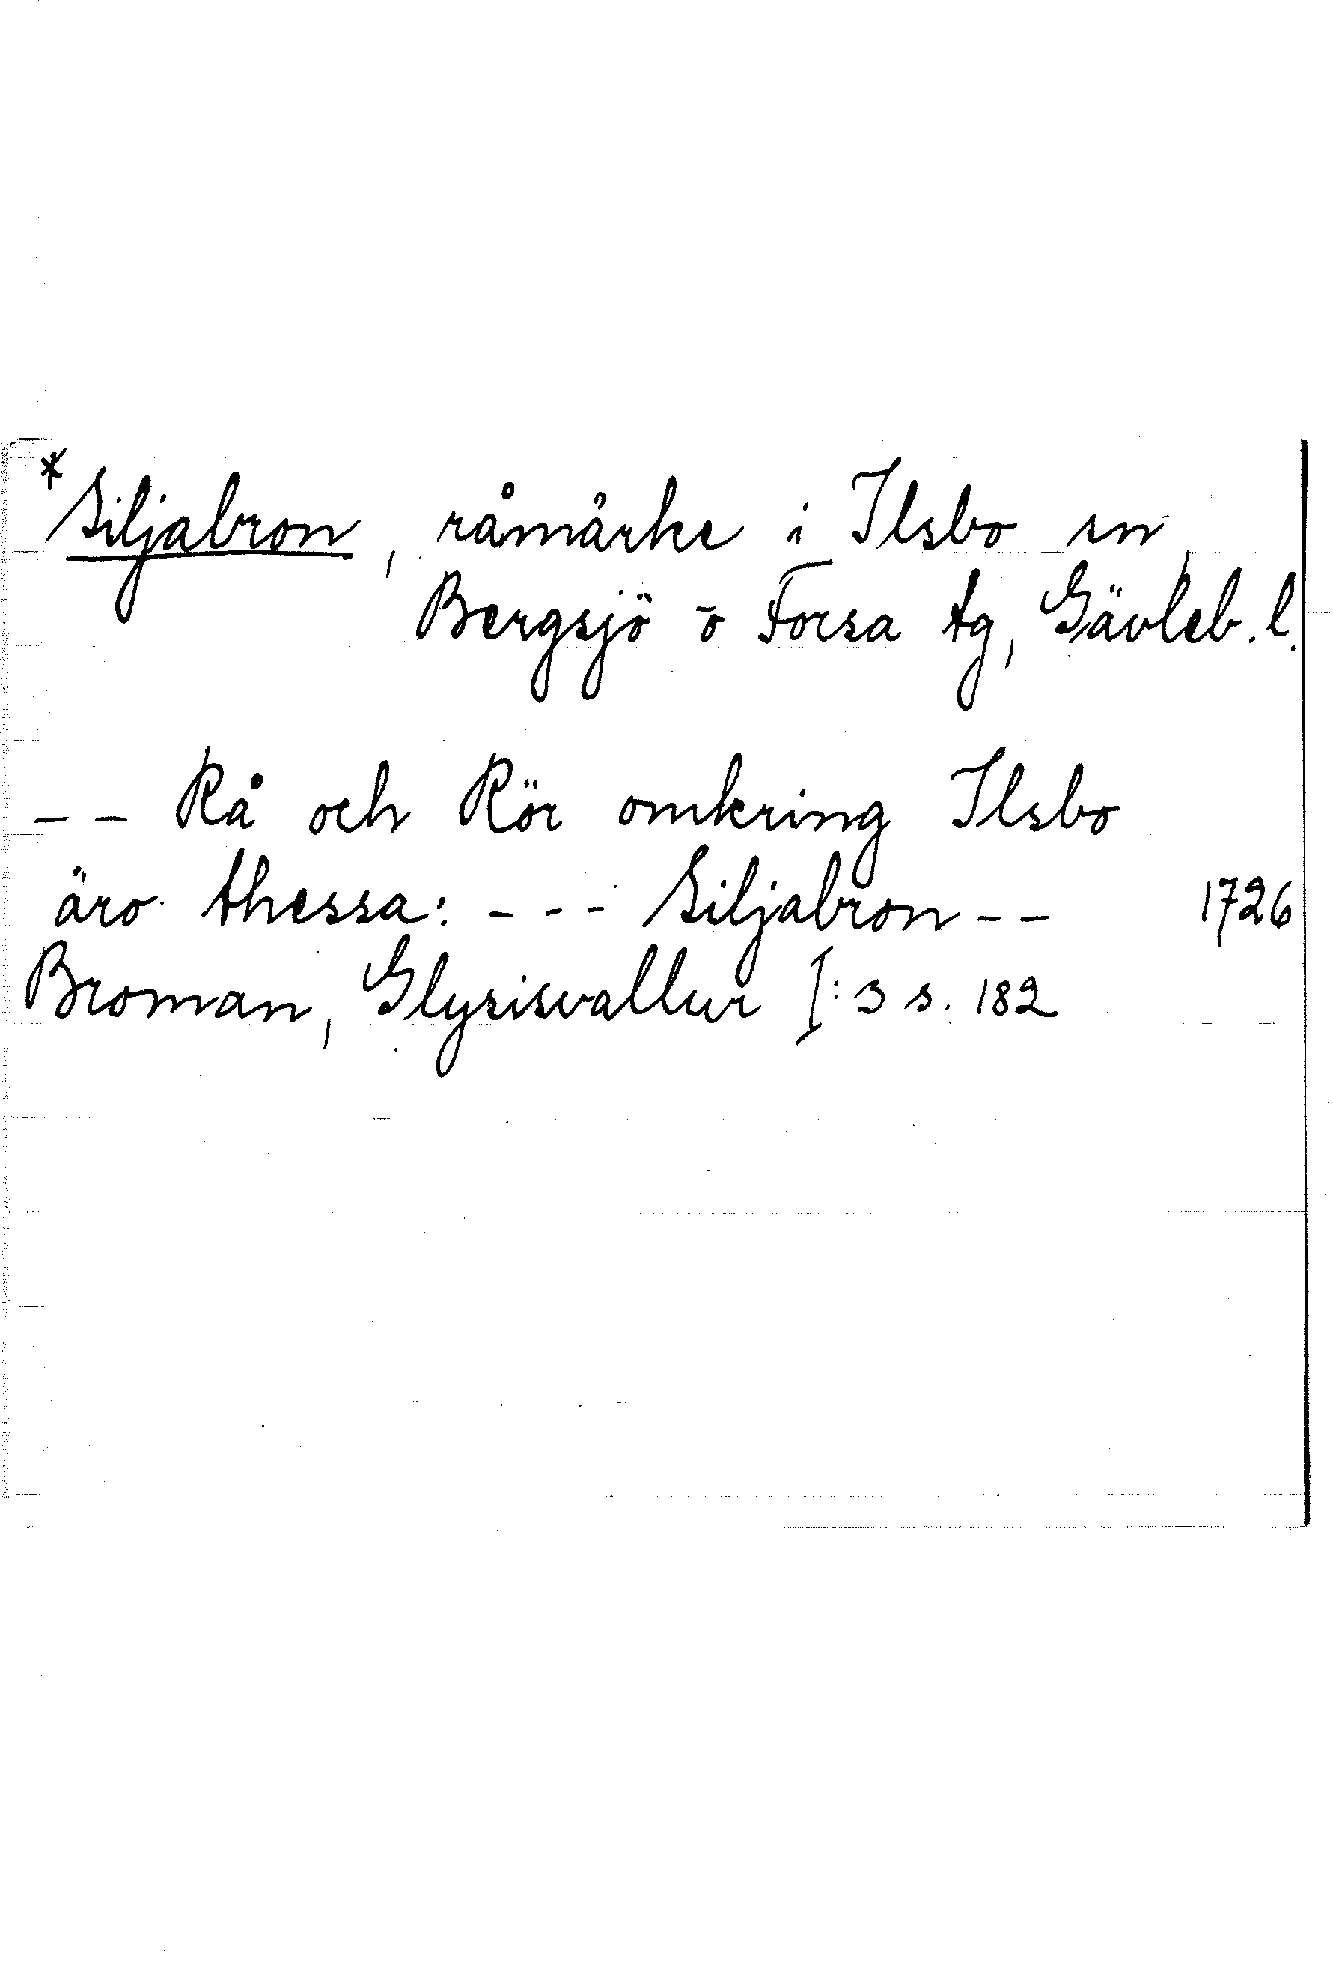 *Siljabron, råmärke i Ilsbo sn,
Bergsjö o Forsa tg, Gävleb. l.
-- Rå och Rör omkring Ilsbo
äro thessa: --- Siljabron -- 1726
Broman, Glysisvallur I: 3 s. 182